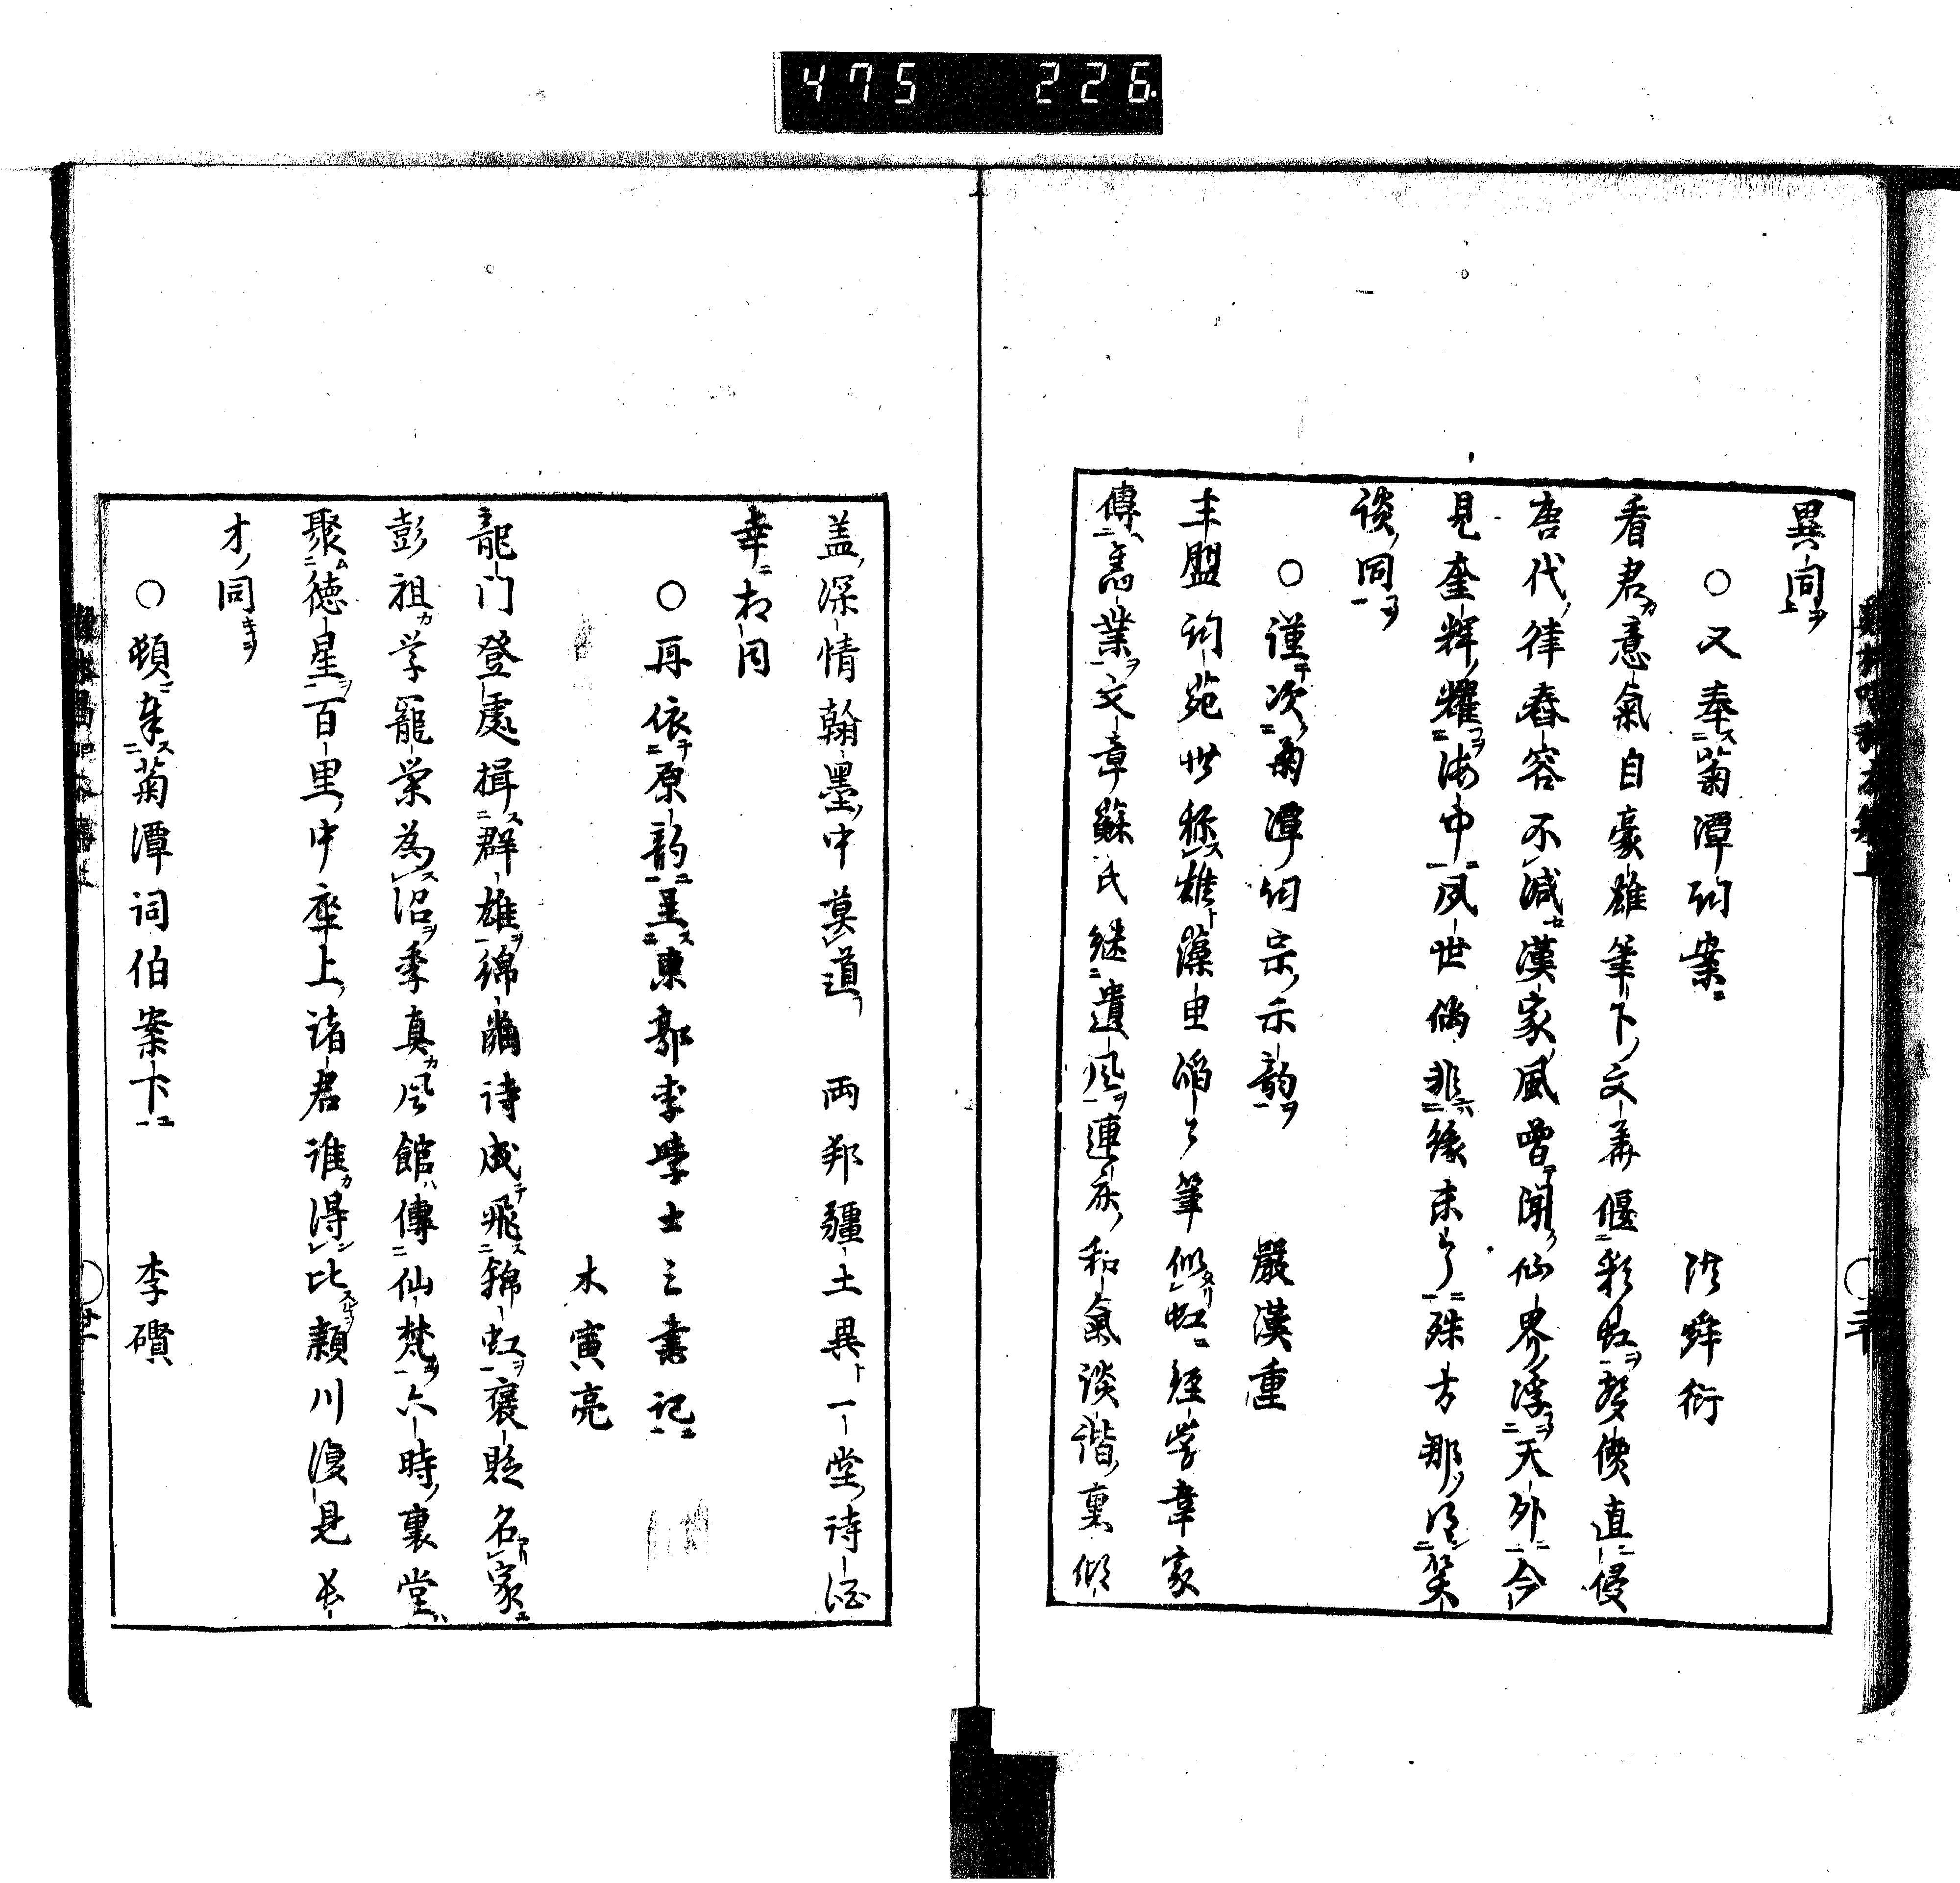 475 226
異同
○又奉菊潭詞案 洪舜衍
看君意氣自豪雄筆下文華偃彩虹聲價直侵
唐代律舂容不減漢家風曾聞仙界浮天外今
見奎輝耀海中夙世偶非緣未了殊方那得笑
談同
○謹次菊潭詞宗示韻 嚴漢重
主盟詞苑世稱雄藻思滔々筆似虹經學韋家
傳舊業文章蘇氏継遺風連床和氣談諧裏傾
盖深情翰墨中莫道兩邦疆土異一堂詩酒
幸相同
○再依原韵呈東郭李學士三書記
木寅亮
龍門登處揖群雄綿繭詩成飛錦虹褒貶名家
彭祖学寵榮為沼季真風館傳仙梵六時裏堂
聚德星百里中座上諸君誰得比潁川復見長
才同
○頓奉菊潭詞伯案下 李礥